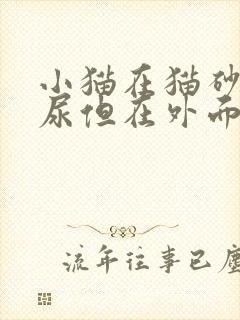 小猫在猫砂
尿但在外面
流年往事已